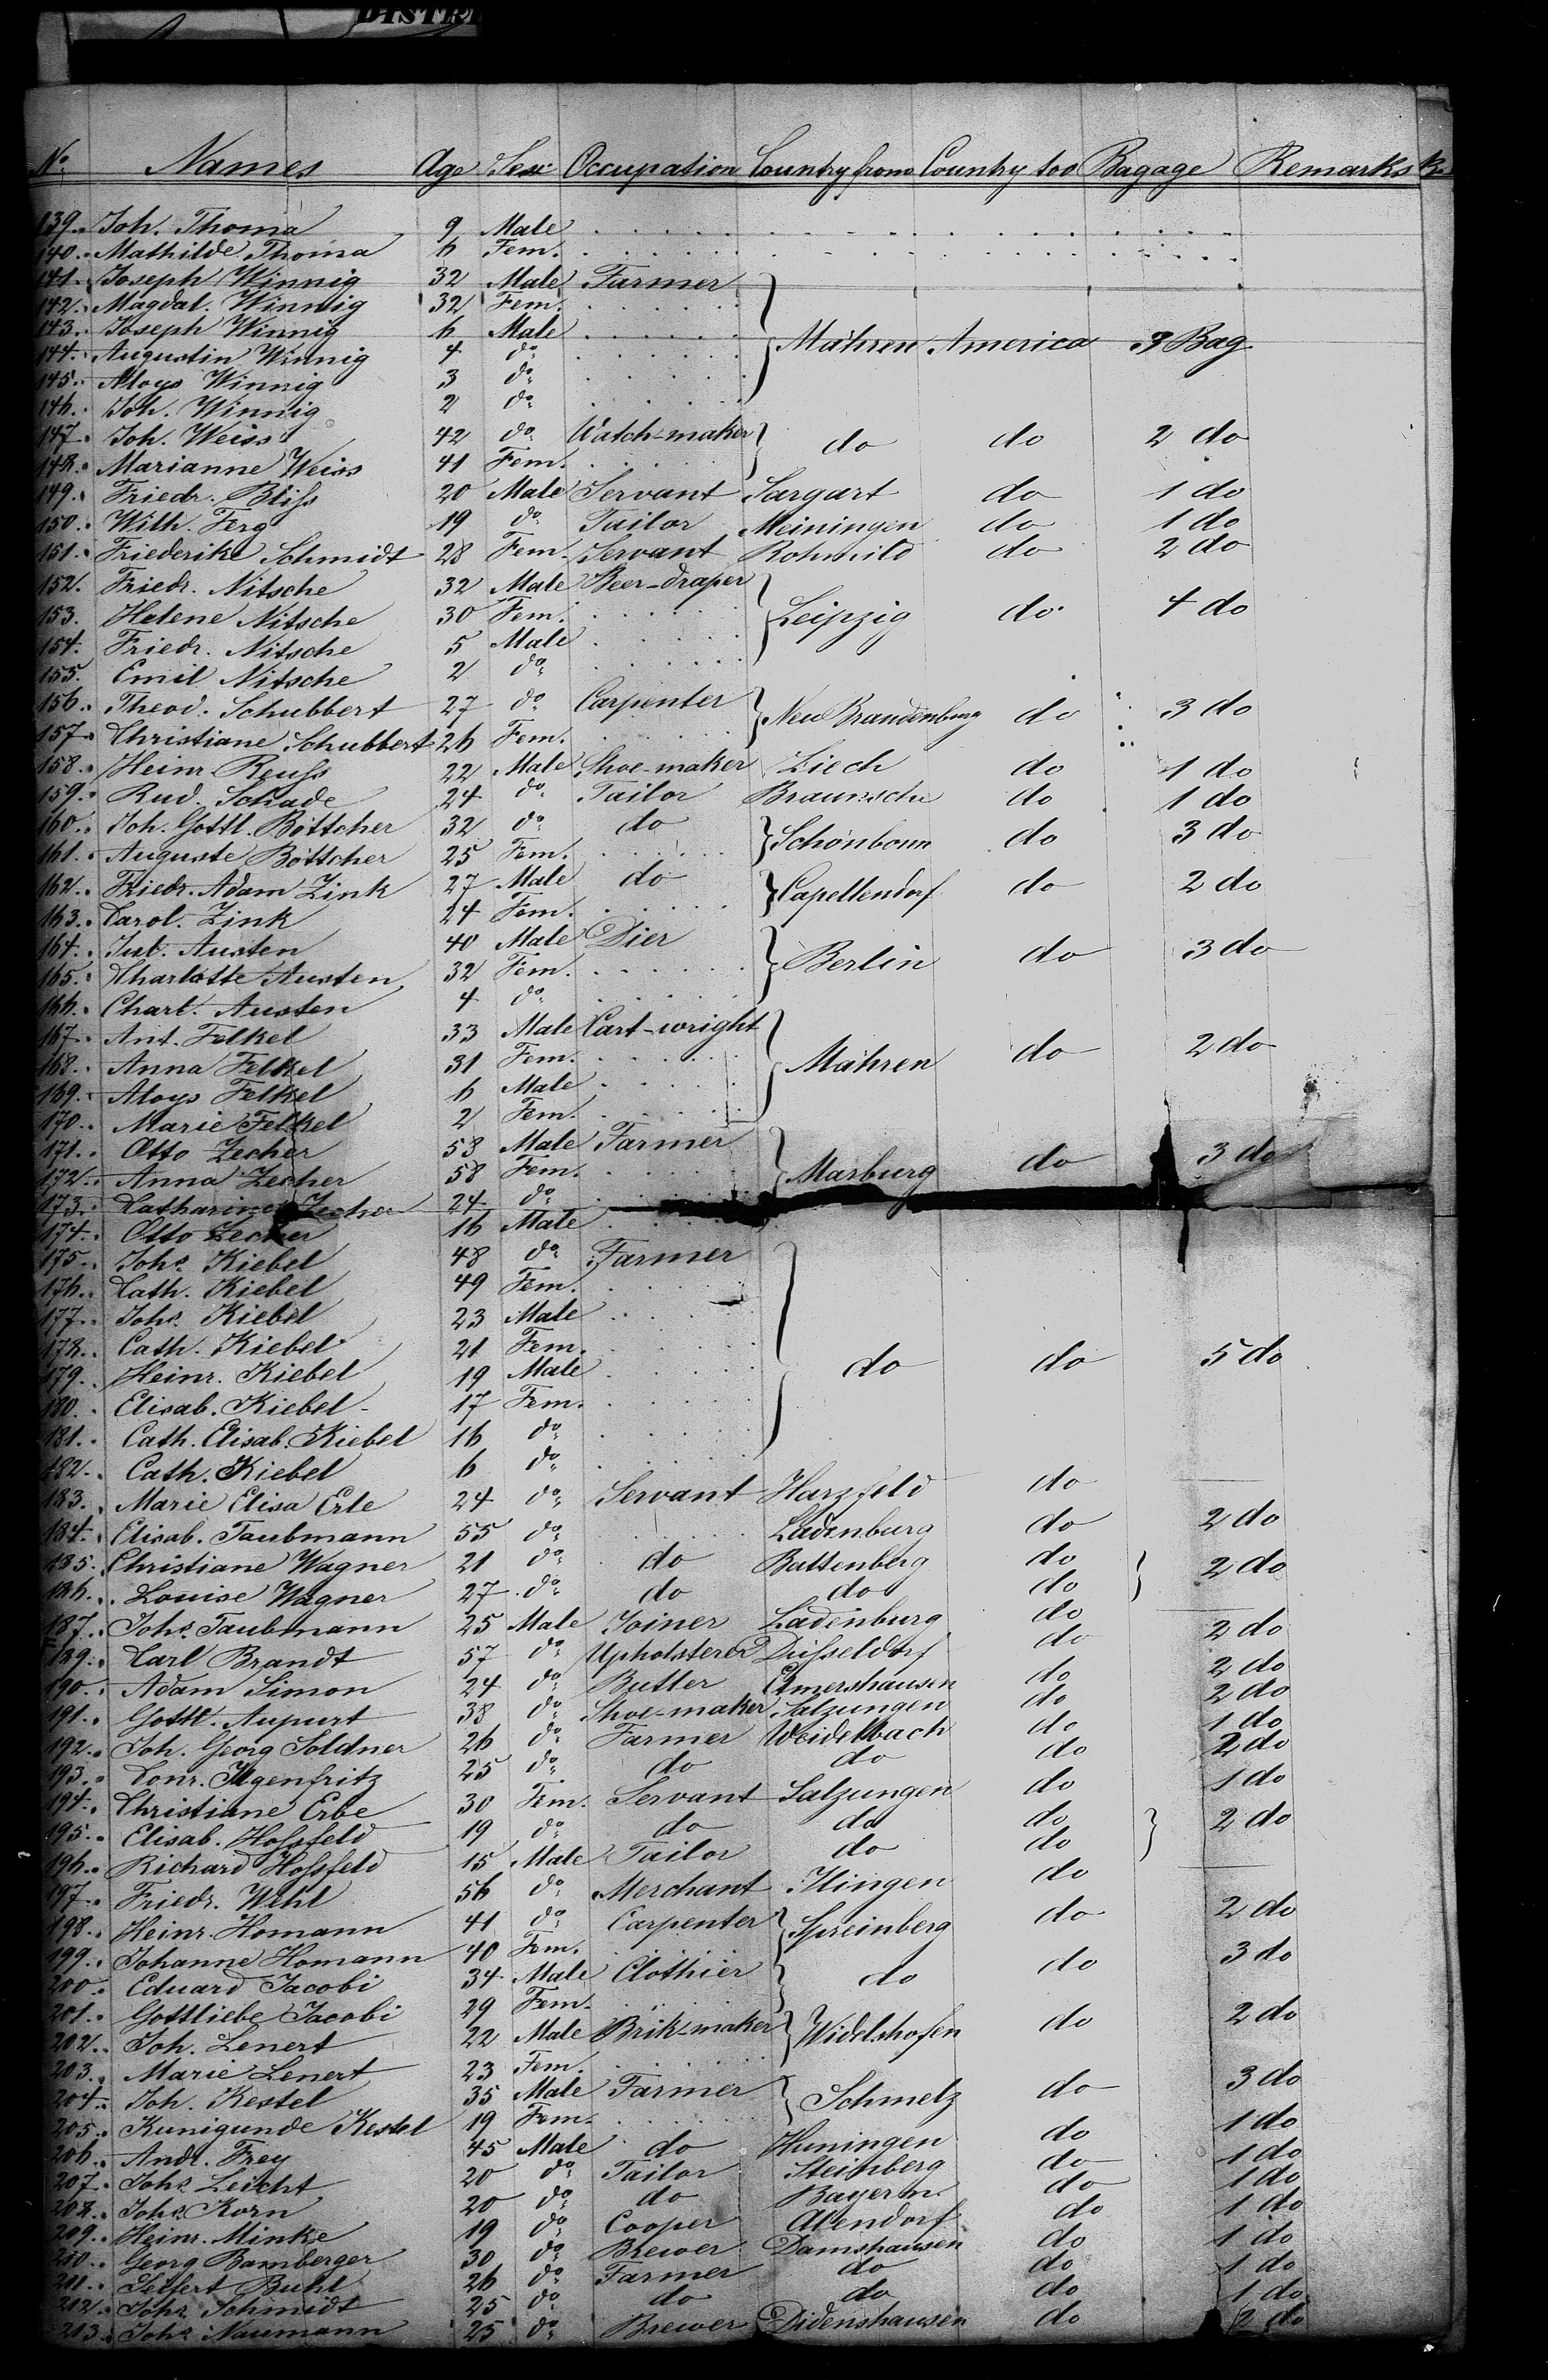 DISTRI
No. Names Age Sex Occupation Country from Country too Bagage Remarks
139. Joh. Thoma 9 Male
140. Mathilde Thoma 6 Fem.
141. Joseph Winnig 32 Male Farmer
142. Magdal. Winnig 32 Fem.
143. Joseph Winnig 6 Male Mähren America 3 Bag
144. Augustin Winnig 4 do
145. Aloys Winnig 3 do
146. Joh. Winnig 2 do
147. Joh. Weiss 42 do Watch-maker do do 2 do
148. Marianne Weiss 41 Fem.
149. Friedr. Bliss 20 Male Servant Sargart do 1 do
150. Wilh. Ferg 19 do Tailor Meiningen do 1 do
151. Friederike Schmidt 28 Fem. Servant Rohmild do 2 do
152. Friedr. Nitsche 32 Male Beer-draper
153. Helene Nitsche 30 Fem. Leipzig do 4 do
154. Friedr. Nitsche 5 Male
155. Emil Nitsche 2 do
156. Theod. Schubbert 27 do Carpenter Neu Brandenburg do 3 do
157. Christiane Schubbert 26 Fem.
158. Heinr. Reuss 22 Male Shoe-maker Ziech do 1 do
159. Rud. Schade 24 do Tailor Braunsche do 1 do
160. Joh. Gottl. Böttcher 32 do do Schönbonn do 3 do
161. Auguste Böttcher 25 Fem.
162. Friedr. Adam Zink 27 Male do Capellendorf do 2 do
163. Carol. Zink 24 Fem.
164. Jul. Austen 40 Male Dier Berlin do 3 do
165. Charlotte Austen 32 Fem.
166. Charl. Austen 4 do
167. Ant. Felkel 33 Male Cart-wright
168. Anna Felkel 31 Fem. Mähren do 2 do
169. Aloys Felkel 6 Male
170. Marie Felkel 2 Fem.
171. Otto Zecher 53 Male Farmer
172. Anna Zecher 58 Fem. Marburg do 3 do
173. Catharine Zecher 24 do
174. Otto Zecher 16 Male
175. Johs. Kiebel 48 do Farmer
176. Cath. Kiebel 49 Fem.
177. Johs. Kiebel 23 Male
178. Cath. Kiebel 21 Fem.
179. Heinr. Kiebel 19 Male do do 5 do
180. Elisab. Kiebel 17 Fem.
181. Cath. Elisab. Kiebel 16 do
182. Cath. Kiebel 6 do
183. Marie Elisa Erle 24 do Servant Harzfeld do
184. Elisab. Taubmann 55 do Ladenburg do 2 do
185. Christiane Wagner 21 do do Battenberg do 2 do
186. Louise Wagner 27 do do do do
187. Johs. Taubmann 25 Male Joiner Ladenburg do 2 do
189. Carl Brandt 57 do Upholsterer Düsseldorf do 2 do
190. Adam Simon 24 do Butler Elmershausen do 2 do
191. Gottl. Aupurt 38 do Shoe-maker Salzungen do 1 do
192. Joh. Georg Soldner 26 do Farmer Weidelbach do 2 do
193. Conr. Ilgenfritz 25 do do do do 1 do
194. Christiane Erbe 30 Fem. Servant Salzungen do 2 do
195. Elisab. Hossfeld 19 do do do do
196. Richard Hossfeld 15 Male Tailor do do
197. Friedr. Wehl 56 do Merchant Ilingen do
198. Heinr. Homann 41 do Carpenter Spreinberg do 2 do
199. Johanne Homann 40 Fem.
200. Eduard Jacobi 34 Male Clothier do do 3 do
201. Gottliebe Jacobi 29 Fem.
202. Joh. Lenert 22 Male Brik-maker Widelshofen do 2 do
203. Marie Lenert 23 Fem.
204. Joh. Kestel 35 Male Farmer Schmelz do 3 do
205. Kunigunde Kestel 19 Fem.
206. Andr. Frey 45 Male do Huningen do 1 do
207. Johs. Leicht 20 do Tailor Steinberg do 1 do
208. Johs. Korn 20 do do Bayern do 1 do
209. Heinr. Minke 19 do Cooper Alendorf do 1 do
210. Georg Bamberger 30 do Brewer Damshausen do 1 do
211. Seifert Buhl 26 do Farmer do do 1 do
212. Johs. Schmidt 25 do do do do 1 do
213. Johs. Naumann 25 do Brewer Didenshausen do 2 do